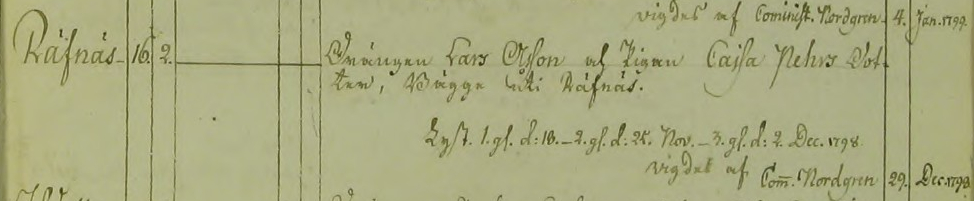 vigdes af Cominist. Nordgren. 4. Jan. 1799.
Räfnäs 16. 2. Drängen Lars Olsson och Pigan Cajsa Nehrs Dot-
ter, Bägge uti Räfnäs.
Lyst. 1. g. d: 18. – 2. g. d: 25. Nov. – 3. g. d: 2. Dec. 1798.
vigdes af Com. Nordgren 29. Dec. 1798